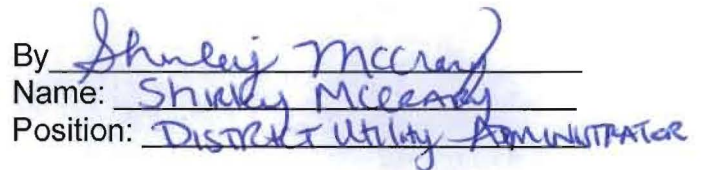 By Shirley McCrary
Name: Shirley McCrary
Position: District Utility Administrator